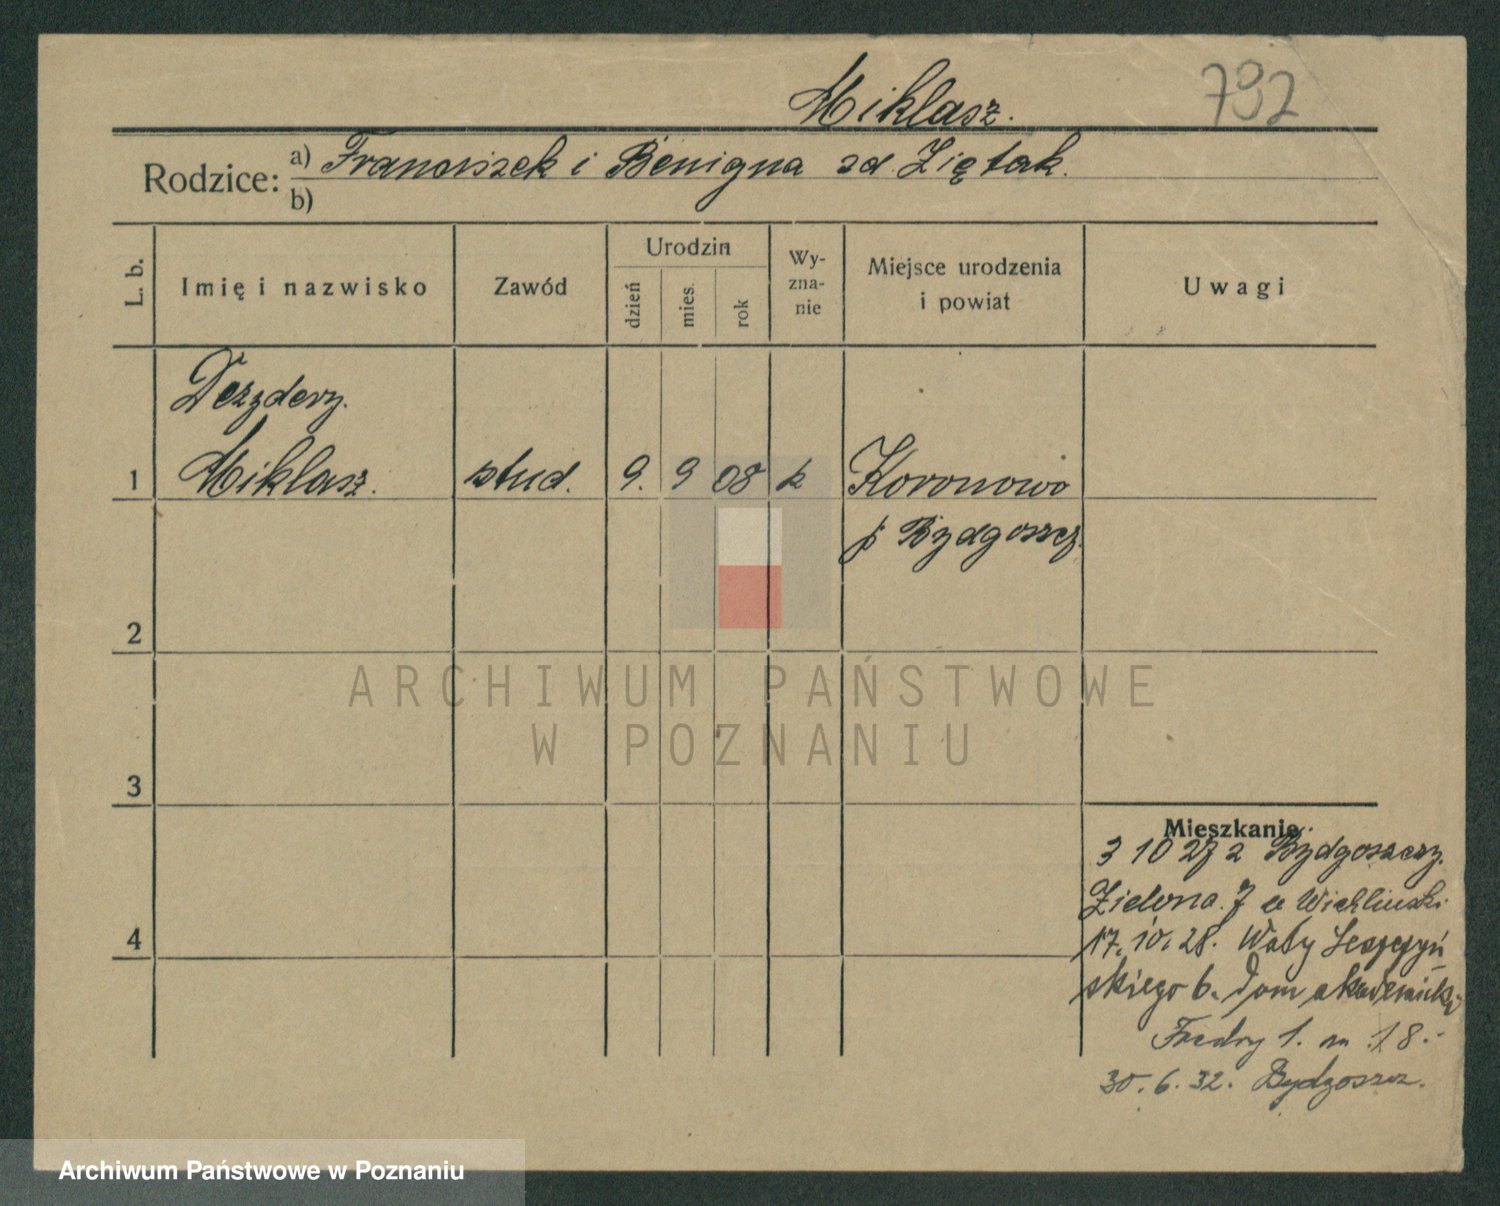 Miklasz.
792
Rodzice:
a) Franciszek i Benigna zd. Ziętak.
b)
L. b.
Imię i nazwisko
Zawód
Urodzin
dzień
mies.
rok
Wy-
zna-
nie
Miejsce urodzenia
i powiat
Uwagi
Dezydery.
1
Miklasz.
stud.
9.
9
08
k
Koronowo
p Bydgoszcz.
2
3
4
Mieszkanie
3 10 27 z Bydgoszczy.
Zielona. 7
17. 10. 28. Wały Leszczyń
skiego 6. Dom akademicki
Fredry 1. m 18.
30. 6. 32. Bydgoszcz.
ARCHIWUM PAŃSTWOWE
W POZNANIU
Archiwum Państwowe w Poznaniu